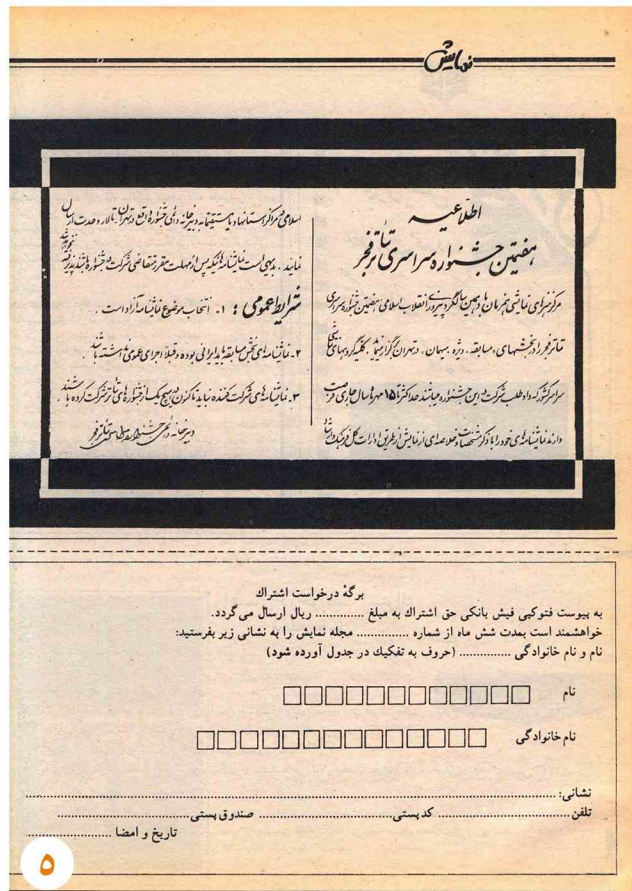 نمایش
اطلاعیه
هفتمین جشنواره سراسری تئاتر فجر
مرکز هنرهای نمایشی همزمان با دهمین سالگرد پیروزی انقلاب اسلامی هفتمین جشنواره سراسری
تئاتر فجر را در بخشهای، مسابقه، ویژه، میهمان، در تهران برگزار مینماید. کلیه گروههای نمایشی
سراسر کشور که داوطلب شرکت در این جشنواره میباشند حداکثر تا ۱۵ مهرماه سال جاری فرصت
دارند نمایشنامه‌های خود را با ذکر مشخصات و خلاصه‌ای از نمایش از طریق ادارات کل فرهنگ و ارشاد
اسلامی در مراکز استانها و یا مستقیماً به دبیرخانه دائمی جشنواره واقع در تهران. تالار وحدت ارسال
نمایند. بدیهی است نمایشنامه‌هائیکه پس از مهلت مقرر متقاضی شرکت در جشنواره باشند پذیرفته نخواهد شد
شرایط عمومی : ۱. انتخاب موضوع نمایشنامه آزاد است .
۲. نمایشنامه‌های بخش مسابقه باید ایرانی بوده و قبلاً اجرای عمومی نداشته باشند
۳. نمایشنامه‌های شرکت کننده نباید تاکنون در هیچ یک از جشنواره‌های تئاتر شرکت کرده باشند .
دبیرخانه دائمی جشنواره سراسری تئاتر فجر
برگهٔ درخواست اشتراك
به پیوست فتوکپی فیش بانکی حق اشتراك به مبلغ .............. ریال ارسال می‌گردد.
خواهشمند است بمدت شش ماه از شماره ............... مجله نمایش را به نشانی زیر بفرستید:
نام و نام خانوادگی .............. (حروف به تفکیك در جدول آورده شود)
نام
نام خانوادگی
نشانی: ..............................
تلفن .............................. کد پستی .............................. صندوق پستی ..............................
تاریخ و امضا ......................
۵